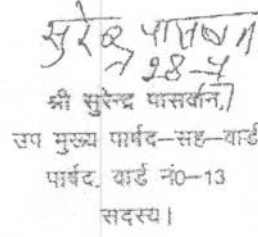 सुरेन्द्र पासवान
28-4
श्री सुरेन्द्र पासवान,
उप मुख्य पार्षद-सह-वार्ड
पार्षद, वार्ड नं0-13
सदस्य।